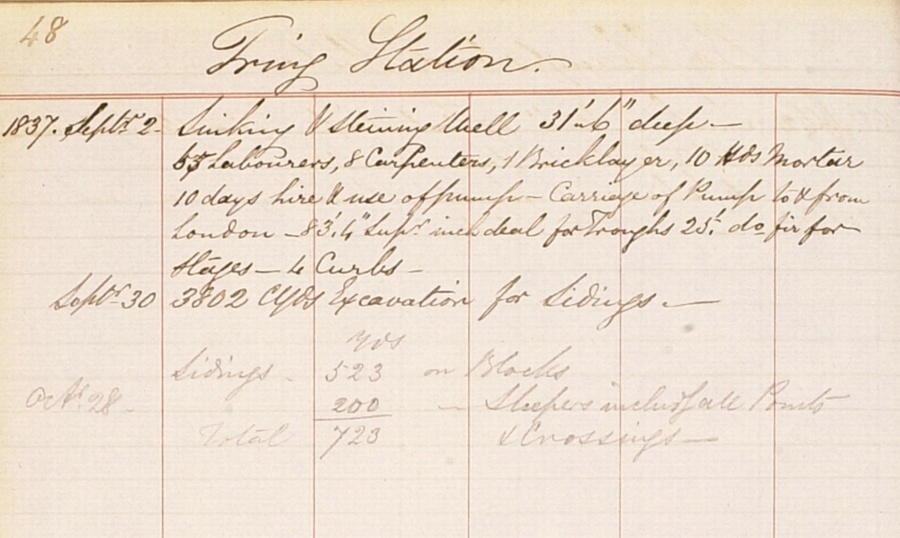 48
Tring Station.
1837. Septr. 2 - Sinking & steining Well 31'.6" deep -
55 Labourers, 8 Carpenters, 1 Bricklayer, 10 Hds Mortar
10 days hire & use of pump - Carriage of Pump to & from
London - 83'.4" Supl. inch deal for Troughs 25'. do. fir for
Stages - 4 Curbs -
Septr. 30 3802 CYds Excavation for Sidings. -
Yds
Sidings - 523 on Blocks
Octr. 28 - 200 - Sleepers includg. all Points
Total 723 & Crossings -